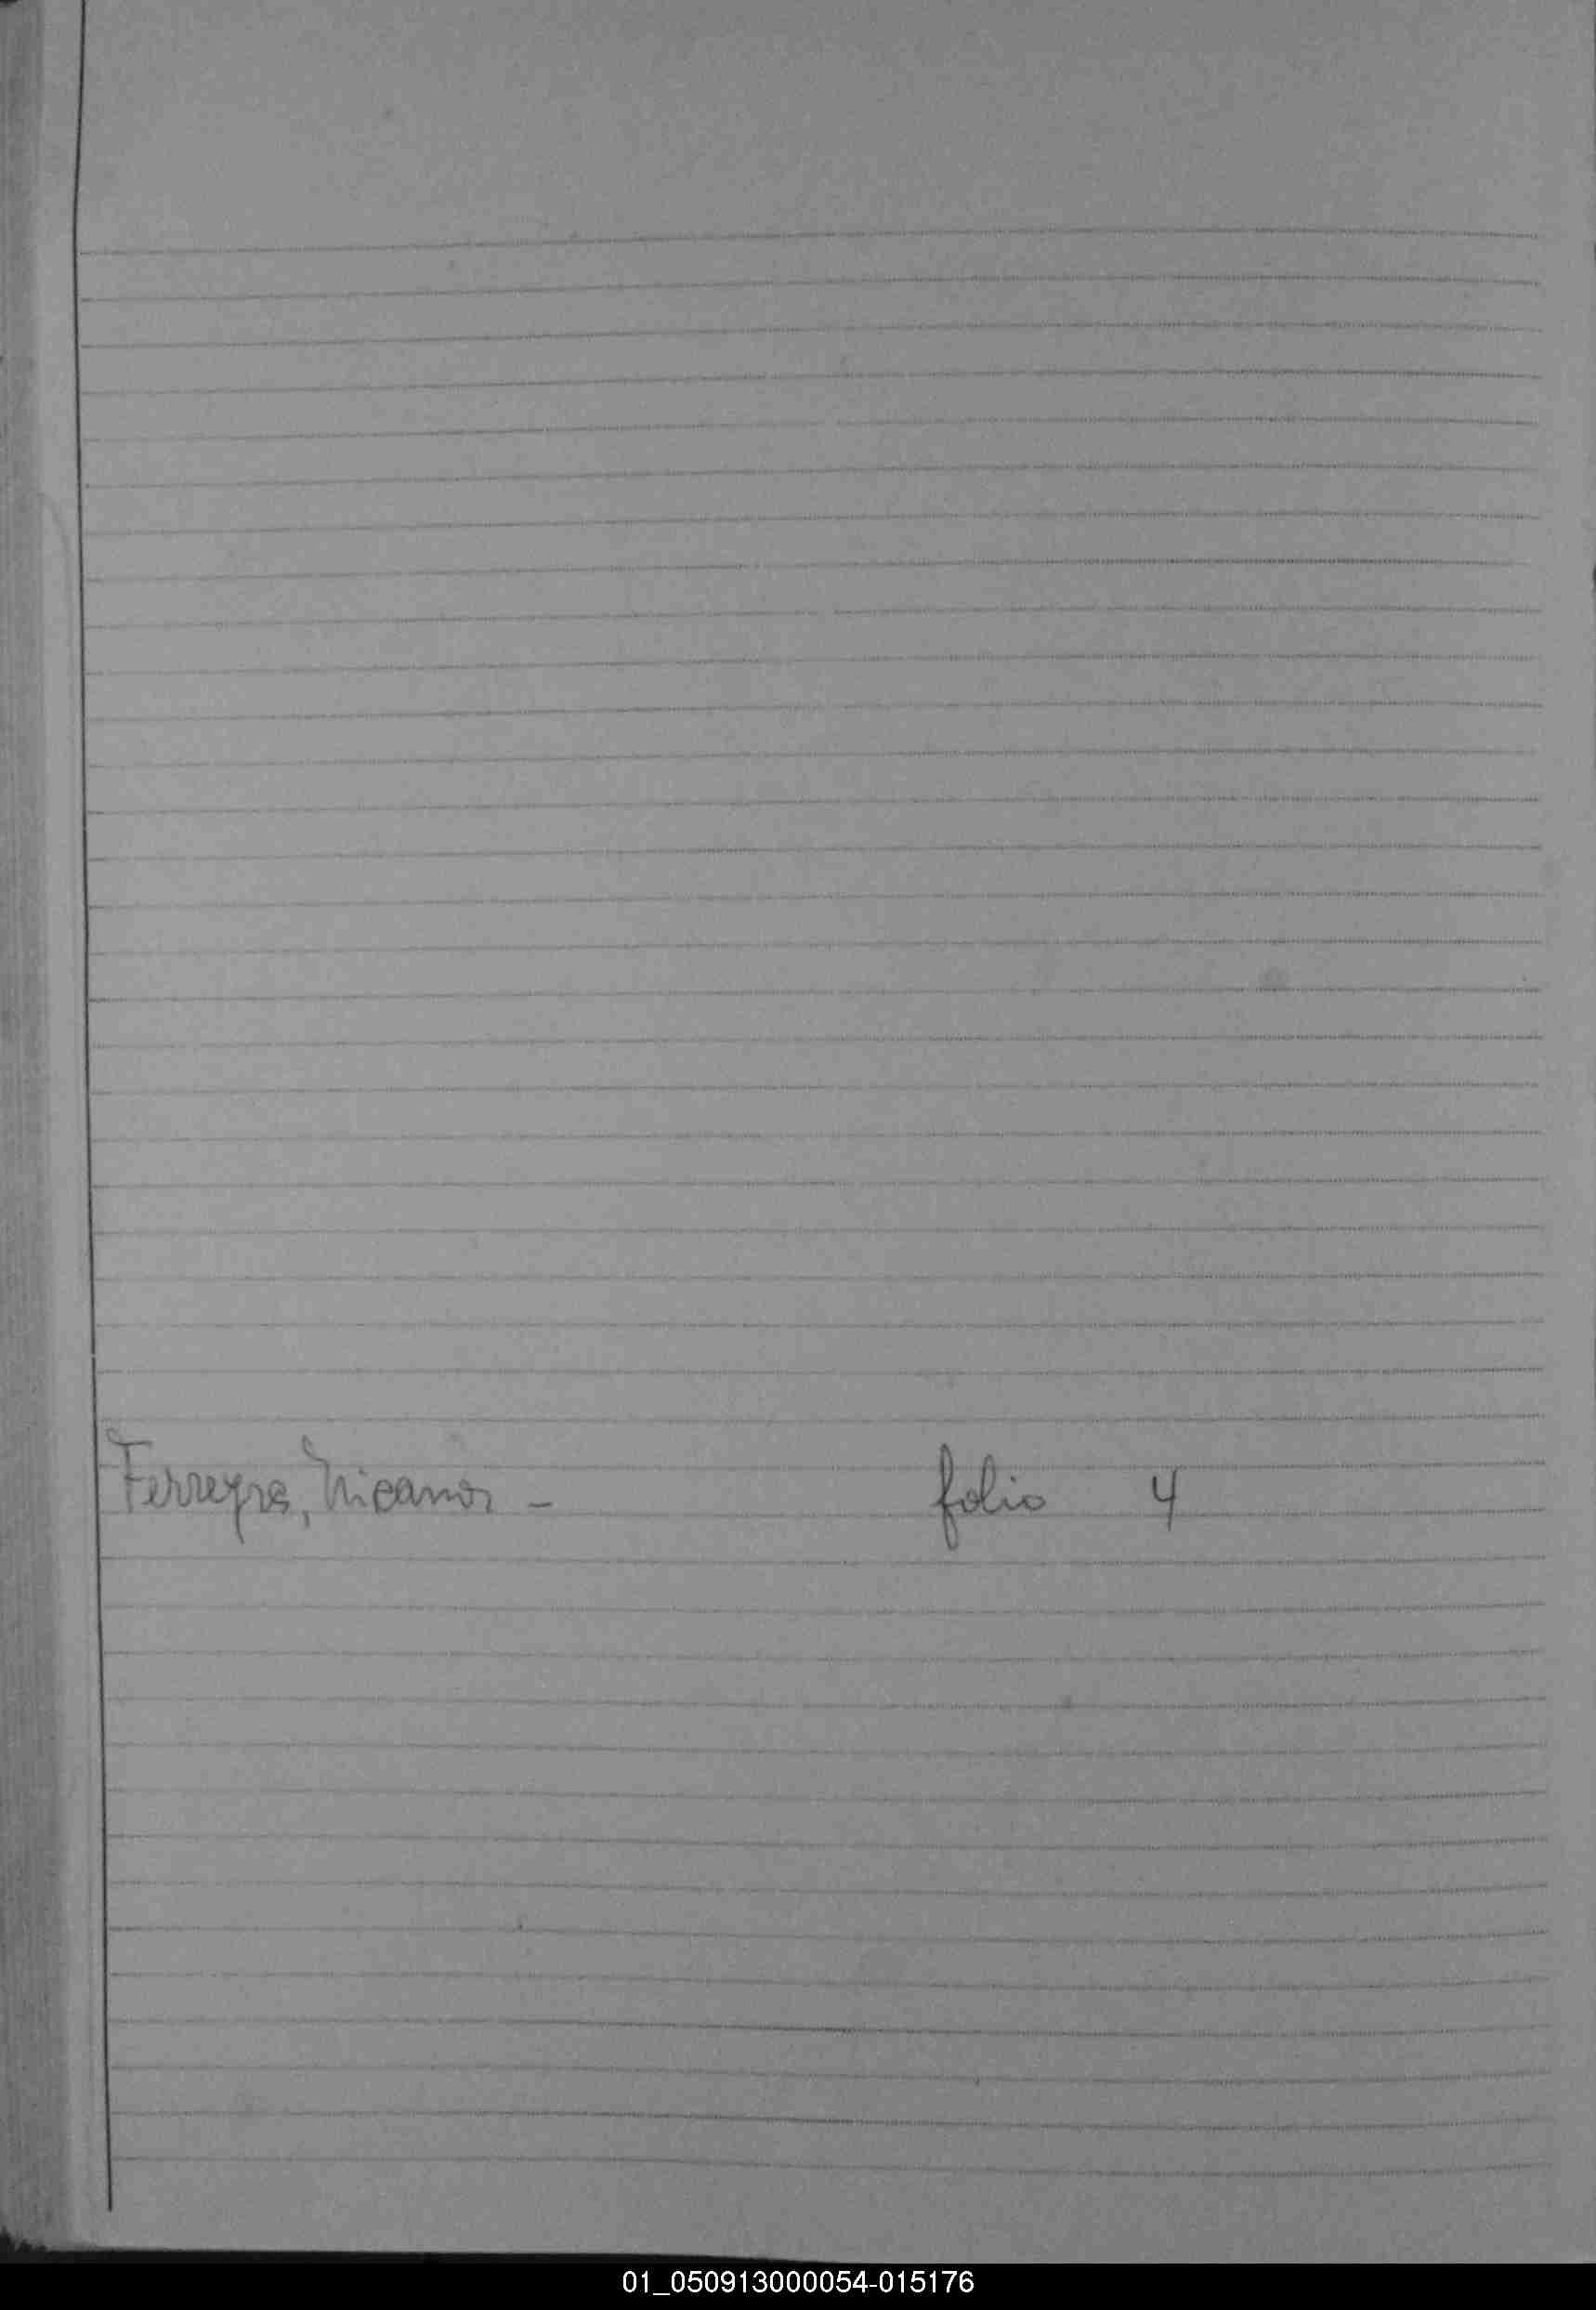 Ferreyra, Nicanor - folio 4
01_050913000054-015176